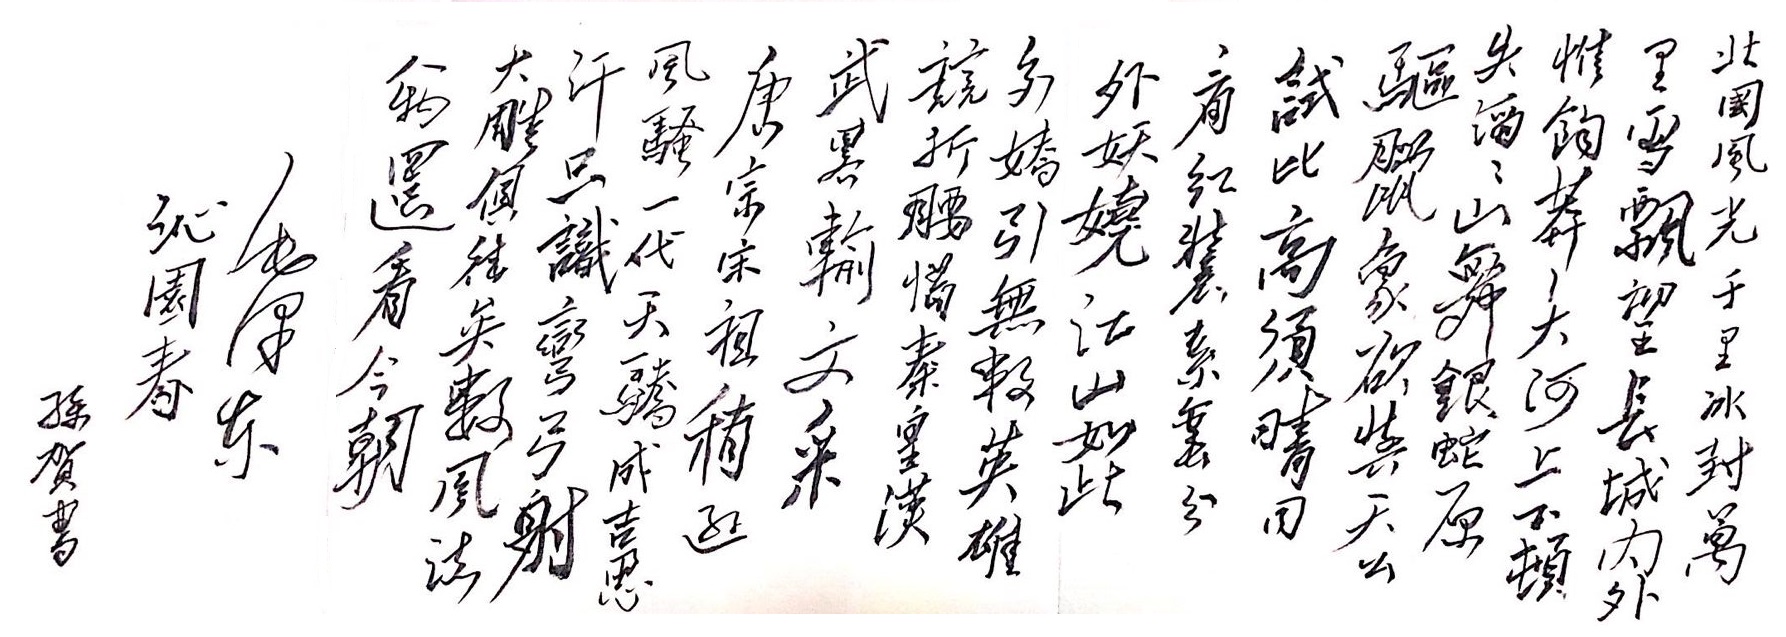 北國風光千里冰封萬
里雪飄望長城内外
惟餘莽〻大河上下頓
失滔〻山舞銀蛇原
驅臘象欲與天公
試比高須晴日
看紅裝素裹分
外妖嬈江山如此
多嬌引無數英雄
競折腰惜秦皇漢
武畧輸文采
唐宗宋祖稍遜
風騷一代天驕成吉思
汗只識彎弓射
大雕俱往矣數風流
人物還看今朝
毛澤东
沁園春
孫賀書